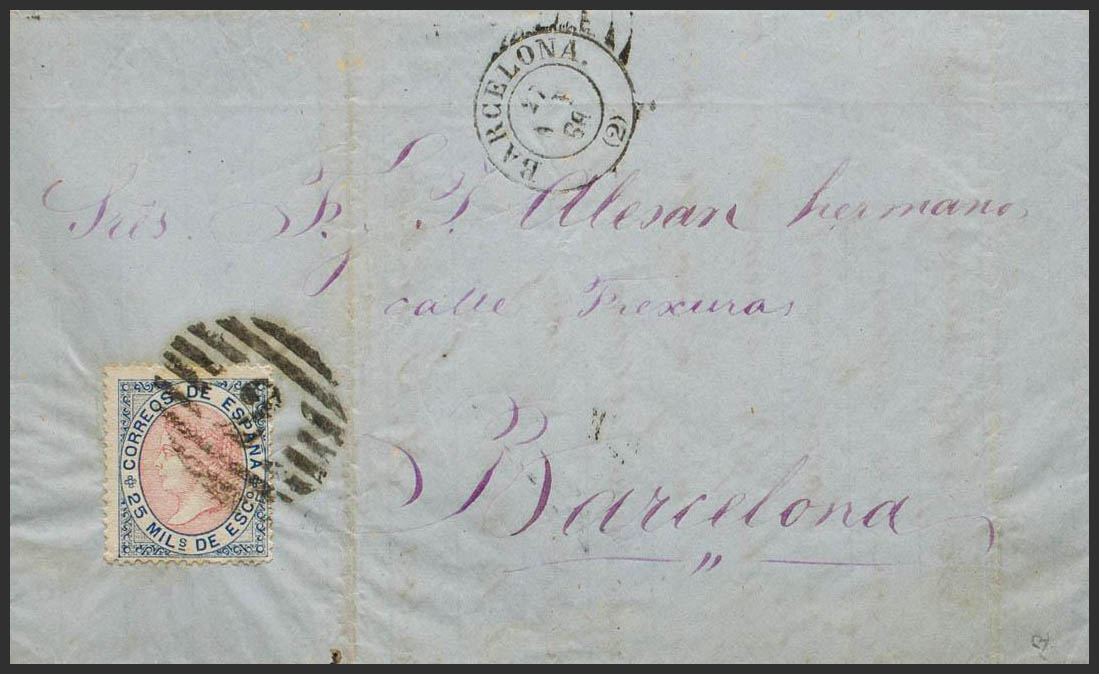 BARCELONA.
27
69
(2)
Srēs. P. S. Alesan hermanos
calle Frexuras
Barcelona
"
CORREOS DE ESPAÑA
25 MILs DE ESCo